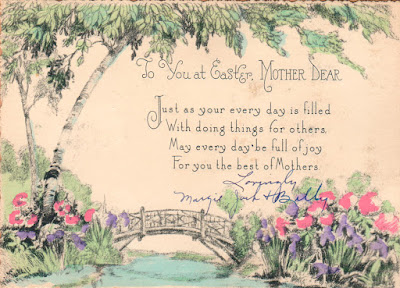 To You at Easter, MOTHER DEAR.
Just as your every day is filled
With doing things for others,
May every day be full of joy
For you the best of Mothers
Lovingly
Margie + Bobby